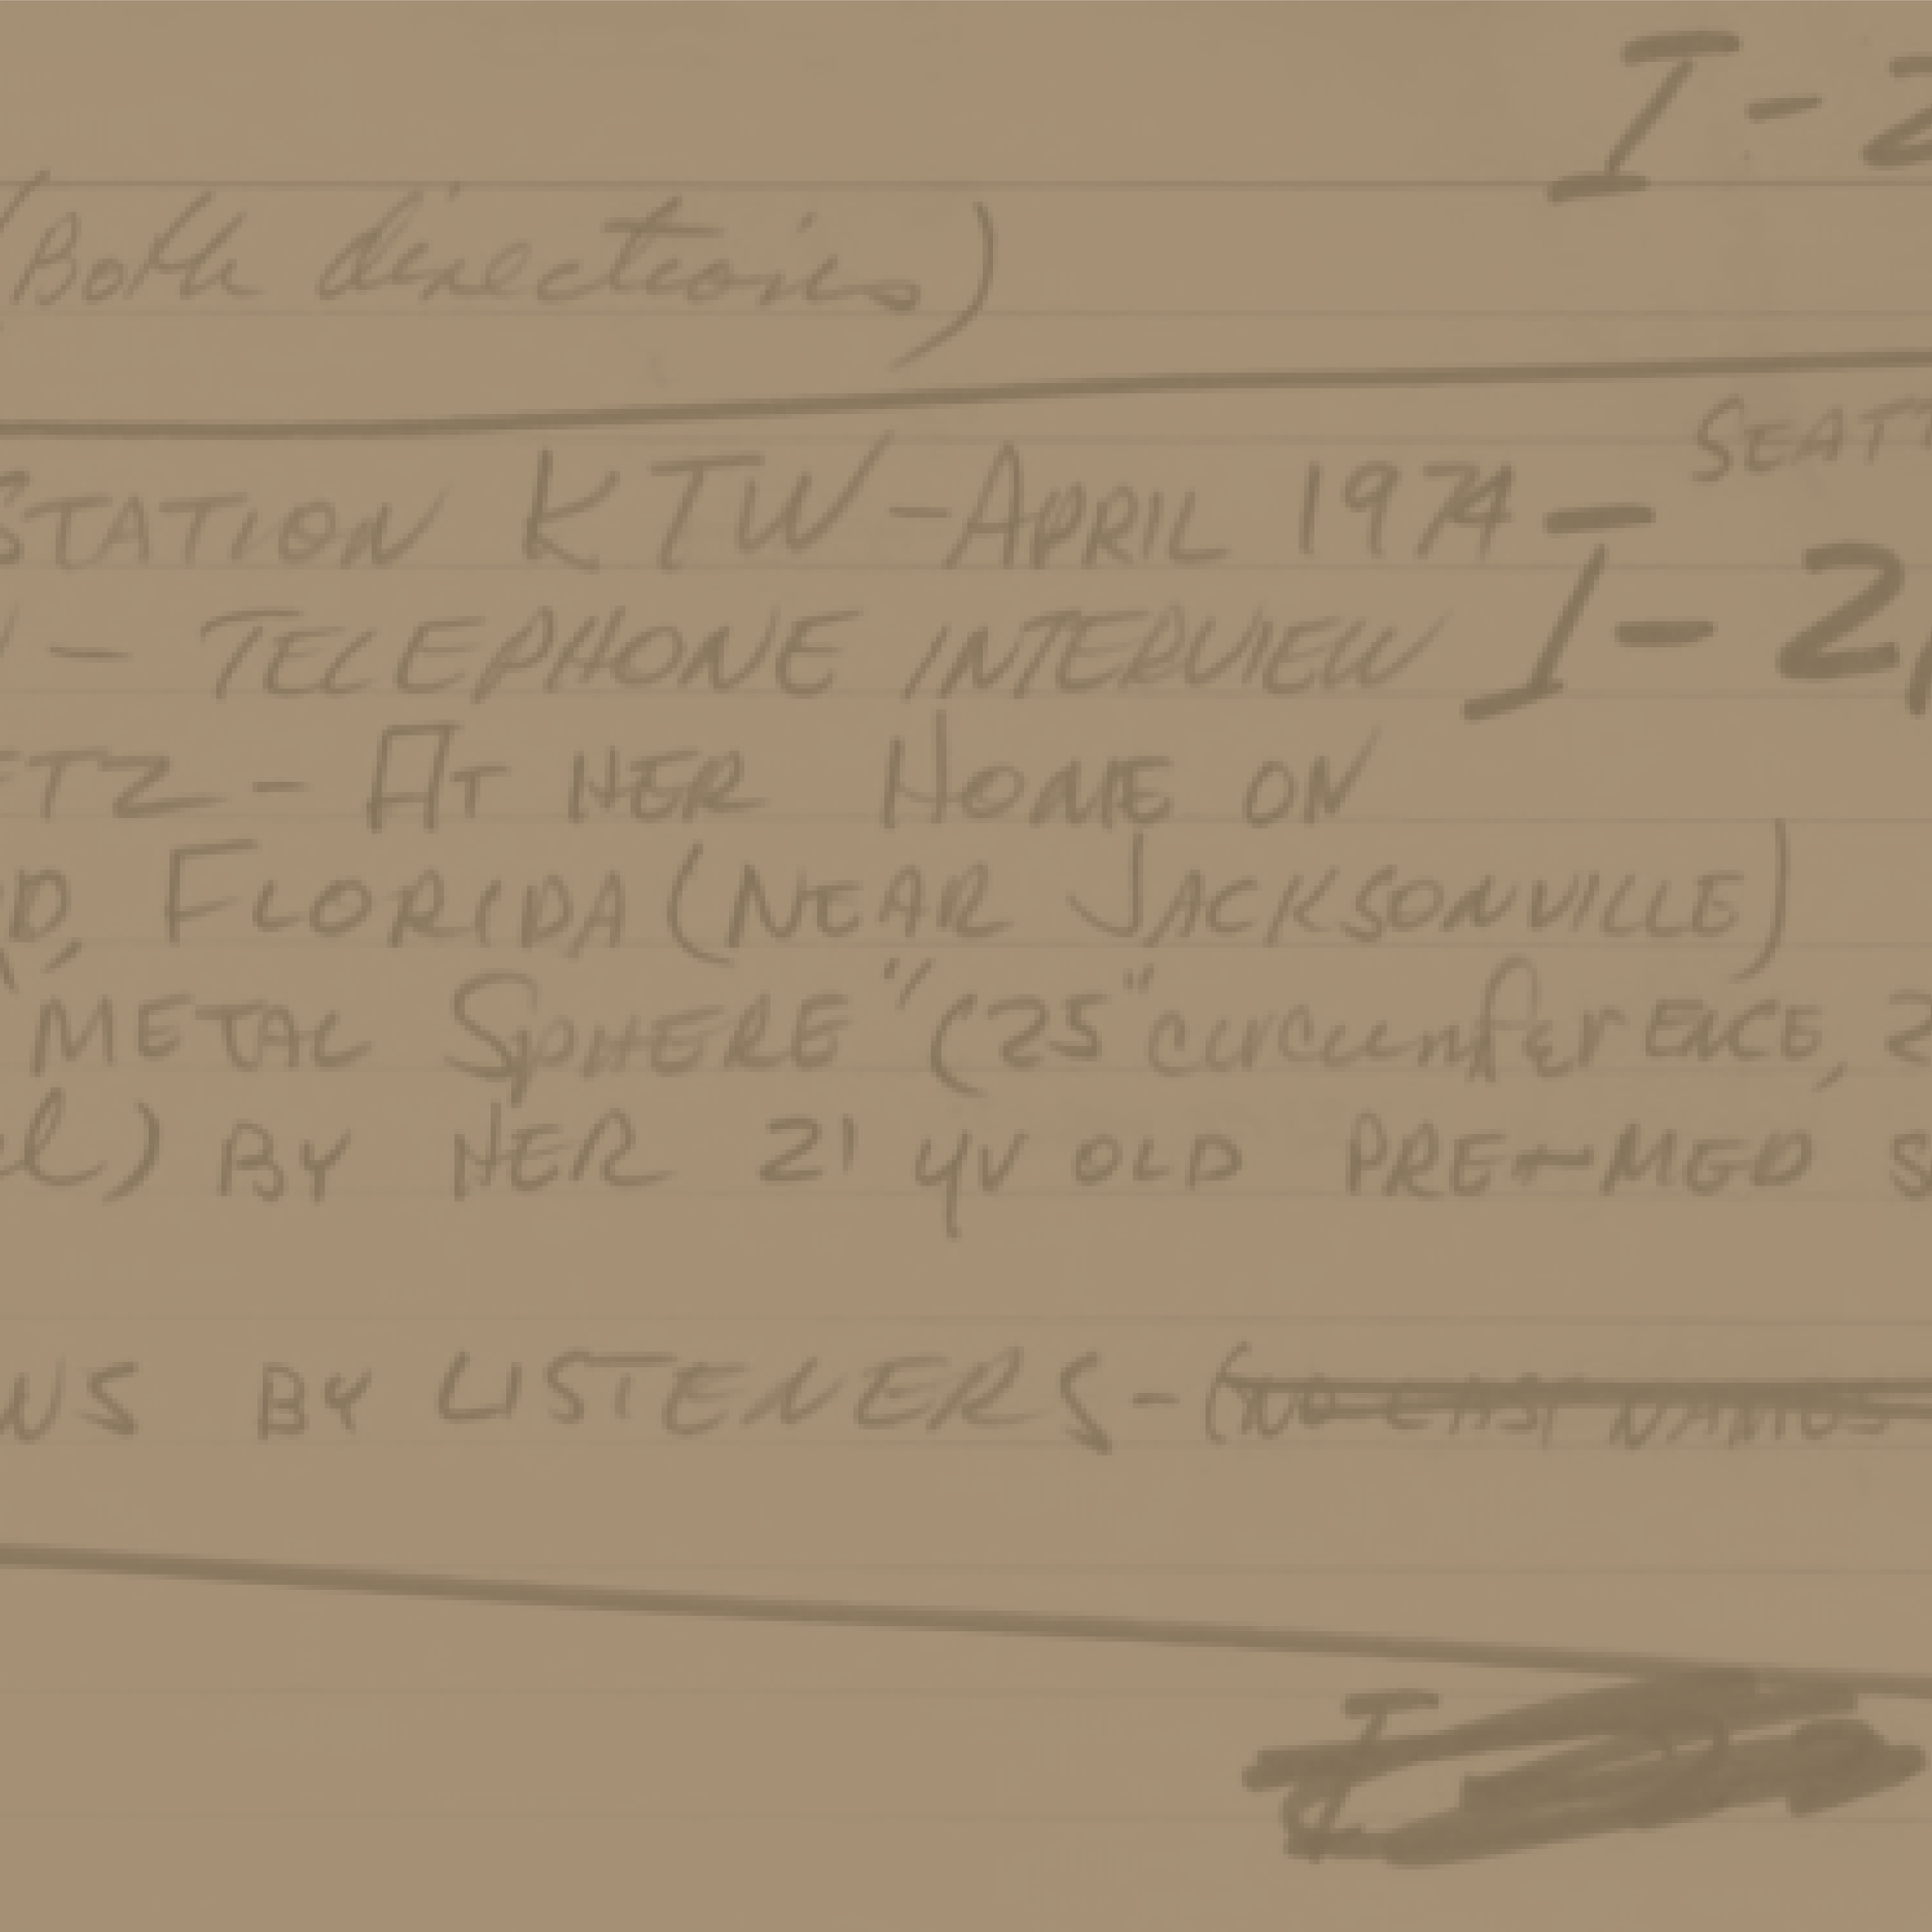 I - 2
(Both directions)
SEATT
STATION KTW - APRIL 1974 -
- TELEPHONE INTERVIEW I - 2
ETZ - AT HER HOME ON
D, FLORIDA (NEAR JACKSONVILLE)
"METAL SPHERE" (25" circumference, 2
el) BY HER 21 yr OLD PRE-MED S
WS BY LISTENERS - (NO LAST NAMES
I